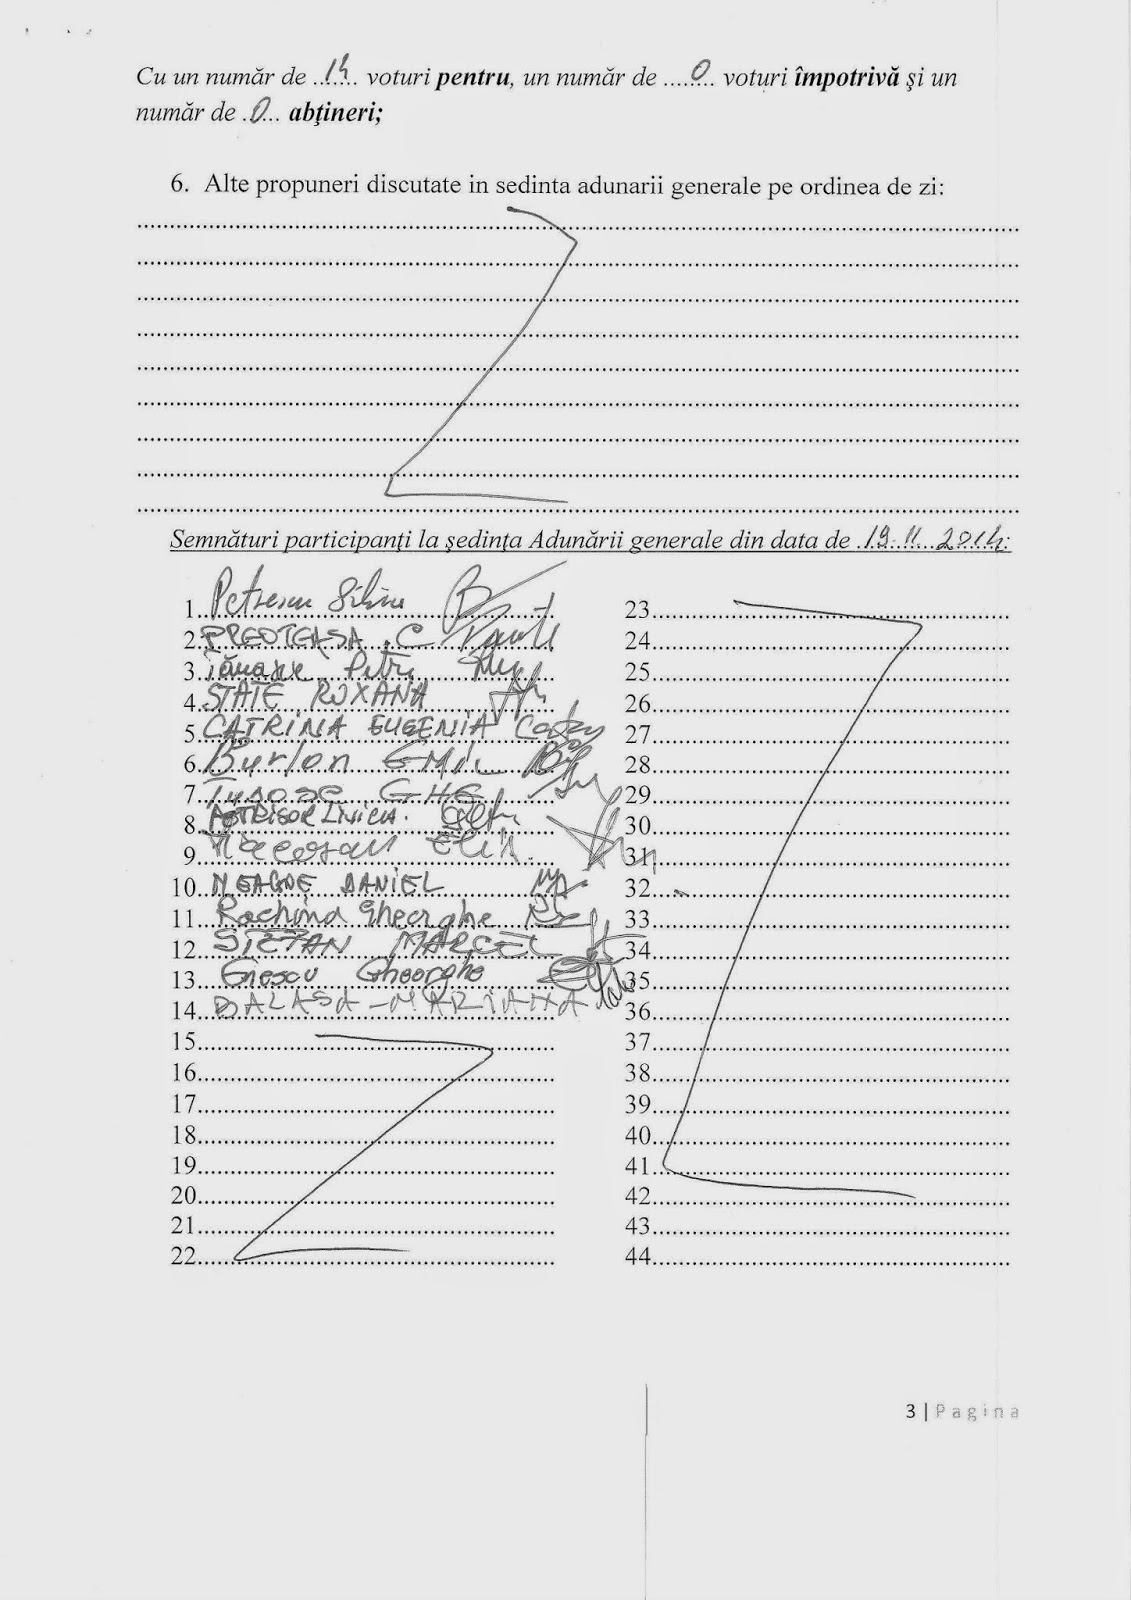 Cu un număr de ..14.. voturi pentru, un număr de ....0.. voturi împotrivă şi un
număr de .0... abţineri;
6. Alte propuneri discutate in sedinta adunarii generale pe ordinea de zi:
Semnături participanţi la şedinţa Adunării generale din data de .19.11...2014:
1. Petrescu Silviu
2. PREOTEASA C
3. Petre
4. STATE ROXANA
5. CATRINA EUGENIA
6. Burlon Emil
7. Tudose GHE
8. PETRISOR LIVICA.
9.
10. NEAGOE DANIEL
11. Rachina Gheorghe
12. STEFAN MARCEL
13. Giescu Gheorghe
14. BALASA - MARIANA
15
16
17
18
19
20
21
22
23
24
25
26
27
28
29
30
31
32
33
34
35
36
37
38
39
40
41
42
43
44
3 | Pagina